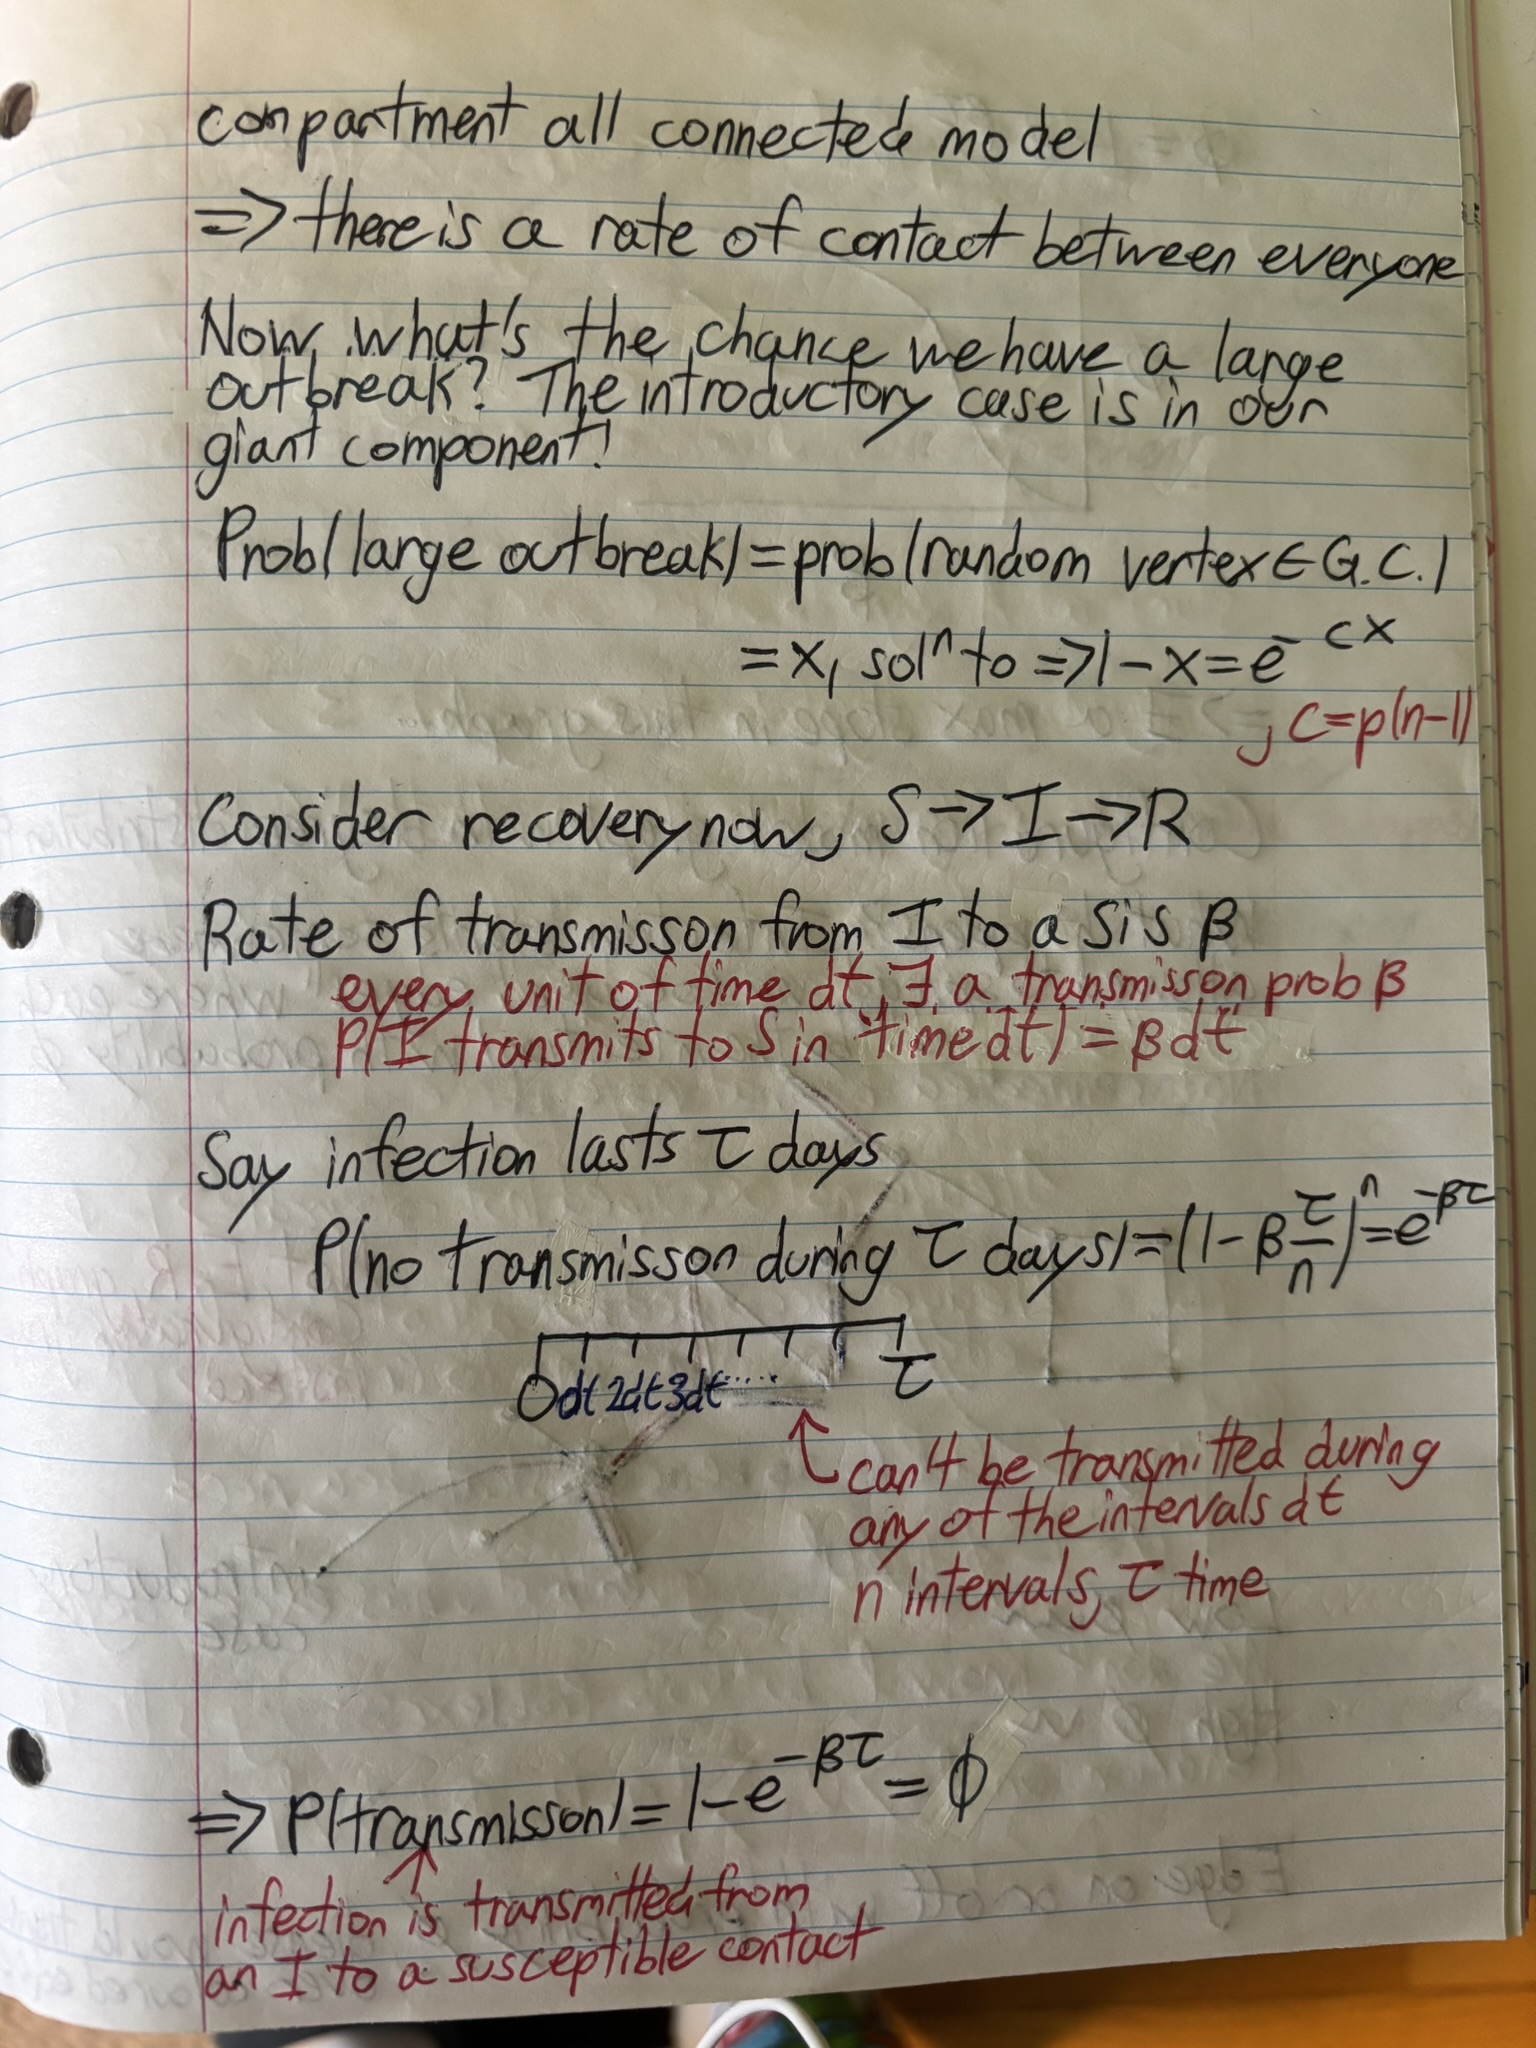 compartment all connected model
=> there is a rate of contact between everyone
Now, what's the chance we have a large
outbreak? The introductory case is in our
giant component!
Prob(large outbreak) = prob(random vertex ∈ G.C.)
= x, solⁿ to => 1 - x = e^-cx
, c = p(n-1)
Consider recovery now, S -> I -> R
Rate of transmisson from I to a S is β
every unit of time dt, ∃ a transmisson prob β
P(I transmits to S in time dt) = βdt
Say infection lasts τ days
P(no transmisson during τ days) = (1 - β τ/n)^n = e^-βτ
0 dt 2dt 3dt ...... τ
can't be transmitted during
any of the intervals dt
n intervals, τ time
=> P(transmisson) = 1 - e^-βτ = ϕ
infection is transmitted from
an I to a susceptible contact